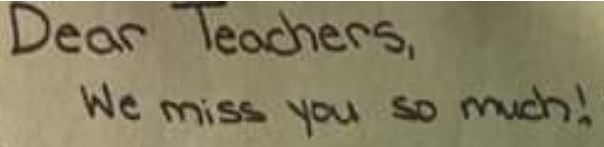 Dear Teachers,
We miss you so much!